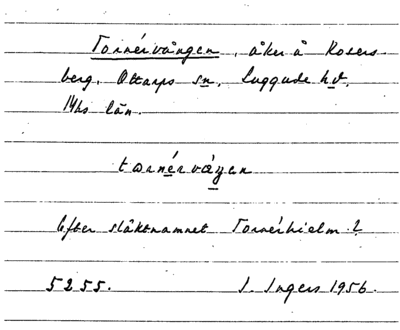 Tornérvången, åker å Rosers-
berg, Ottarps sn, Luggude hd,
Mhs län.
tornérvången
Efter släktnamnet Tornérhielm?
5255. I. Ingers 1956.